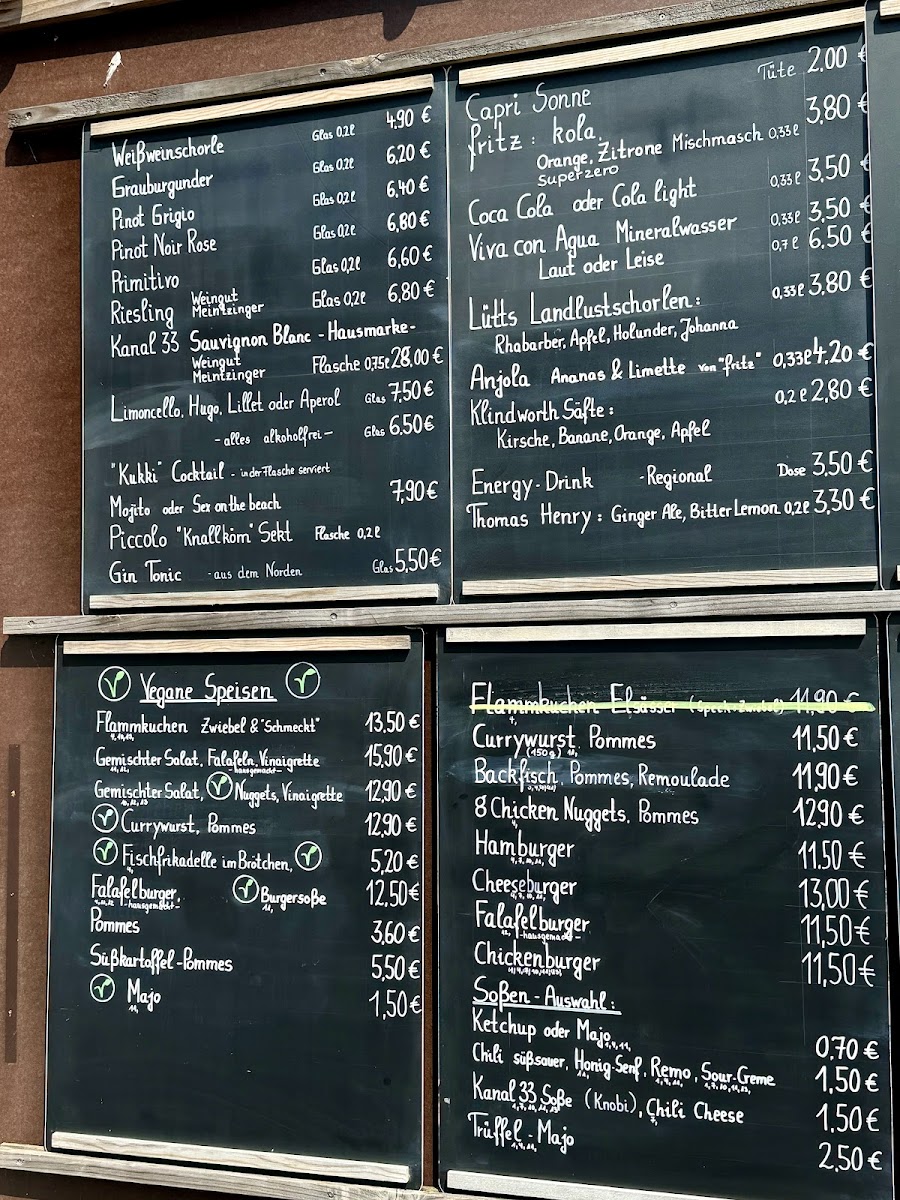 Weißweinschorle Glas 0,2l 4,90 €
Grauburgunder Glas 0,2l 6,20 €
Pinot Grigio Glas 0,2l 6,40 €
Pinot Noir Rose Glas 0,2l 6,80 €
Primitivo Glas 0,2l 6,60 €
Riesling Weingut Meintzinger Glas 0,2l 6,80 €
Kanal 33 Sauvignon Blanc - Hausmarke -
Weingut Meintzinger Flasche 0,75l 28,00 €
Limoncello, Hugo, Lillet oder Aperol Glas 7,50 €
- alles alkoholfrei - Glas 6.50€
"Kukki" Cocktail - in der Flasche serviert
Mojito oder Sex on the beach 7,90 €
Piccolo "Knallköm" Sekt Flasche 0,2l
Gin Tonic - aus dem Norden Glas 5,50 €
Capri Sonne Tüte 2,00 €
fritz : kola, 3,80 €
Orange, Zitrone Mischmasch 0,33l
superzero
Coca Cola oder Cola light 0,33l 3,50 €
Viva con Agua Mineralwasser 0,33l 3,50 €
Laut oder Leise 0,7l 6,50 €
Lütts Landlustschorlen: 0,33l 3,80 €
Rhabarber, Apfel, Holunder, Johanna
Anjola Ananas & Limette von "fritz" 0,33l 4,20 €
Klindworth Säfte: 0,2l 2,80 €
Kirsche, Banane, Orange, Apfel
Energy-Drink - Regional Dose 3,50 €
Thomas Henry: Ginger Ale, Bitter Lemon 0,2l 3,30 €
Vegane Speisen
Flammkuchen Zwiebel & "Schmeckt" 13.50 €
Gemischter Salat, Falafeln, Vinaigrette 15,90 €
hausgemacht
Gemischter Salat, Nuggets, Vinaigrette 12,90 €
Currywurst, Pommes 12,90 €
Fischfrikadelle im Brötchen, 5,20 €
Falafelburger, Burgersoße 12,50 €
hausgemacht
Pommes 3,60 €
Süßkartoffel-Pommes 5,50 €
Majo 1,50 €
Flammkuchen Elsässer (Speck & Zwiebel) 11,90 €
Currywurst, Pommes 11,50 €
(150g)
Backfisch, Pommes, Remoulade 11,90 €
8 Chicken Nuggets, Pommes 12,90 €
Hamburger 11.50 €
Cheeseburger 13,00 €
Falafelburger 11,50 €
hausgemacht
Chickenburger 11,50 €
Soßen - Auswahl:
Ketchup oder Majo 0.70 €
Chili süßsauer, Honig-Senf, Remo, Sour-Creme 1,50 €
Kanal 33 Soße (Knobi), Chili Cheese 1,50 €
Trüffel-Majo 2,50 €